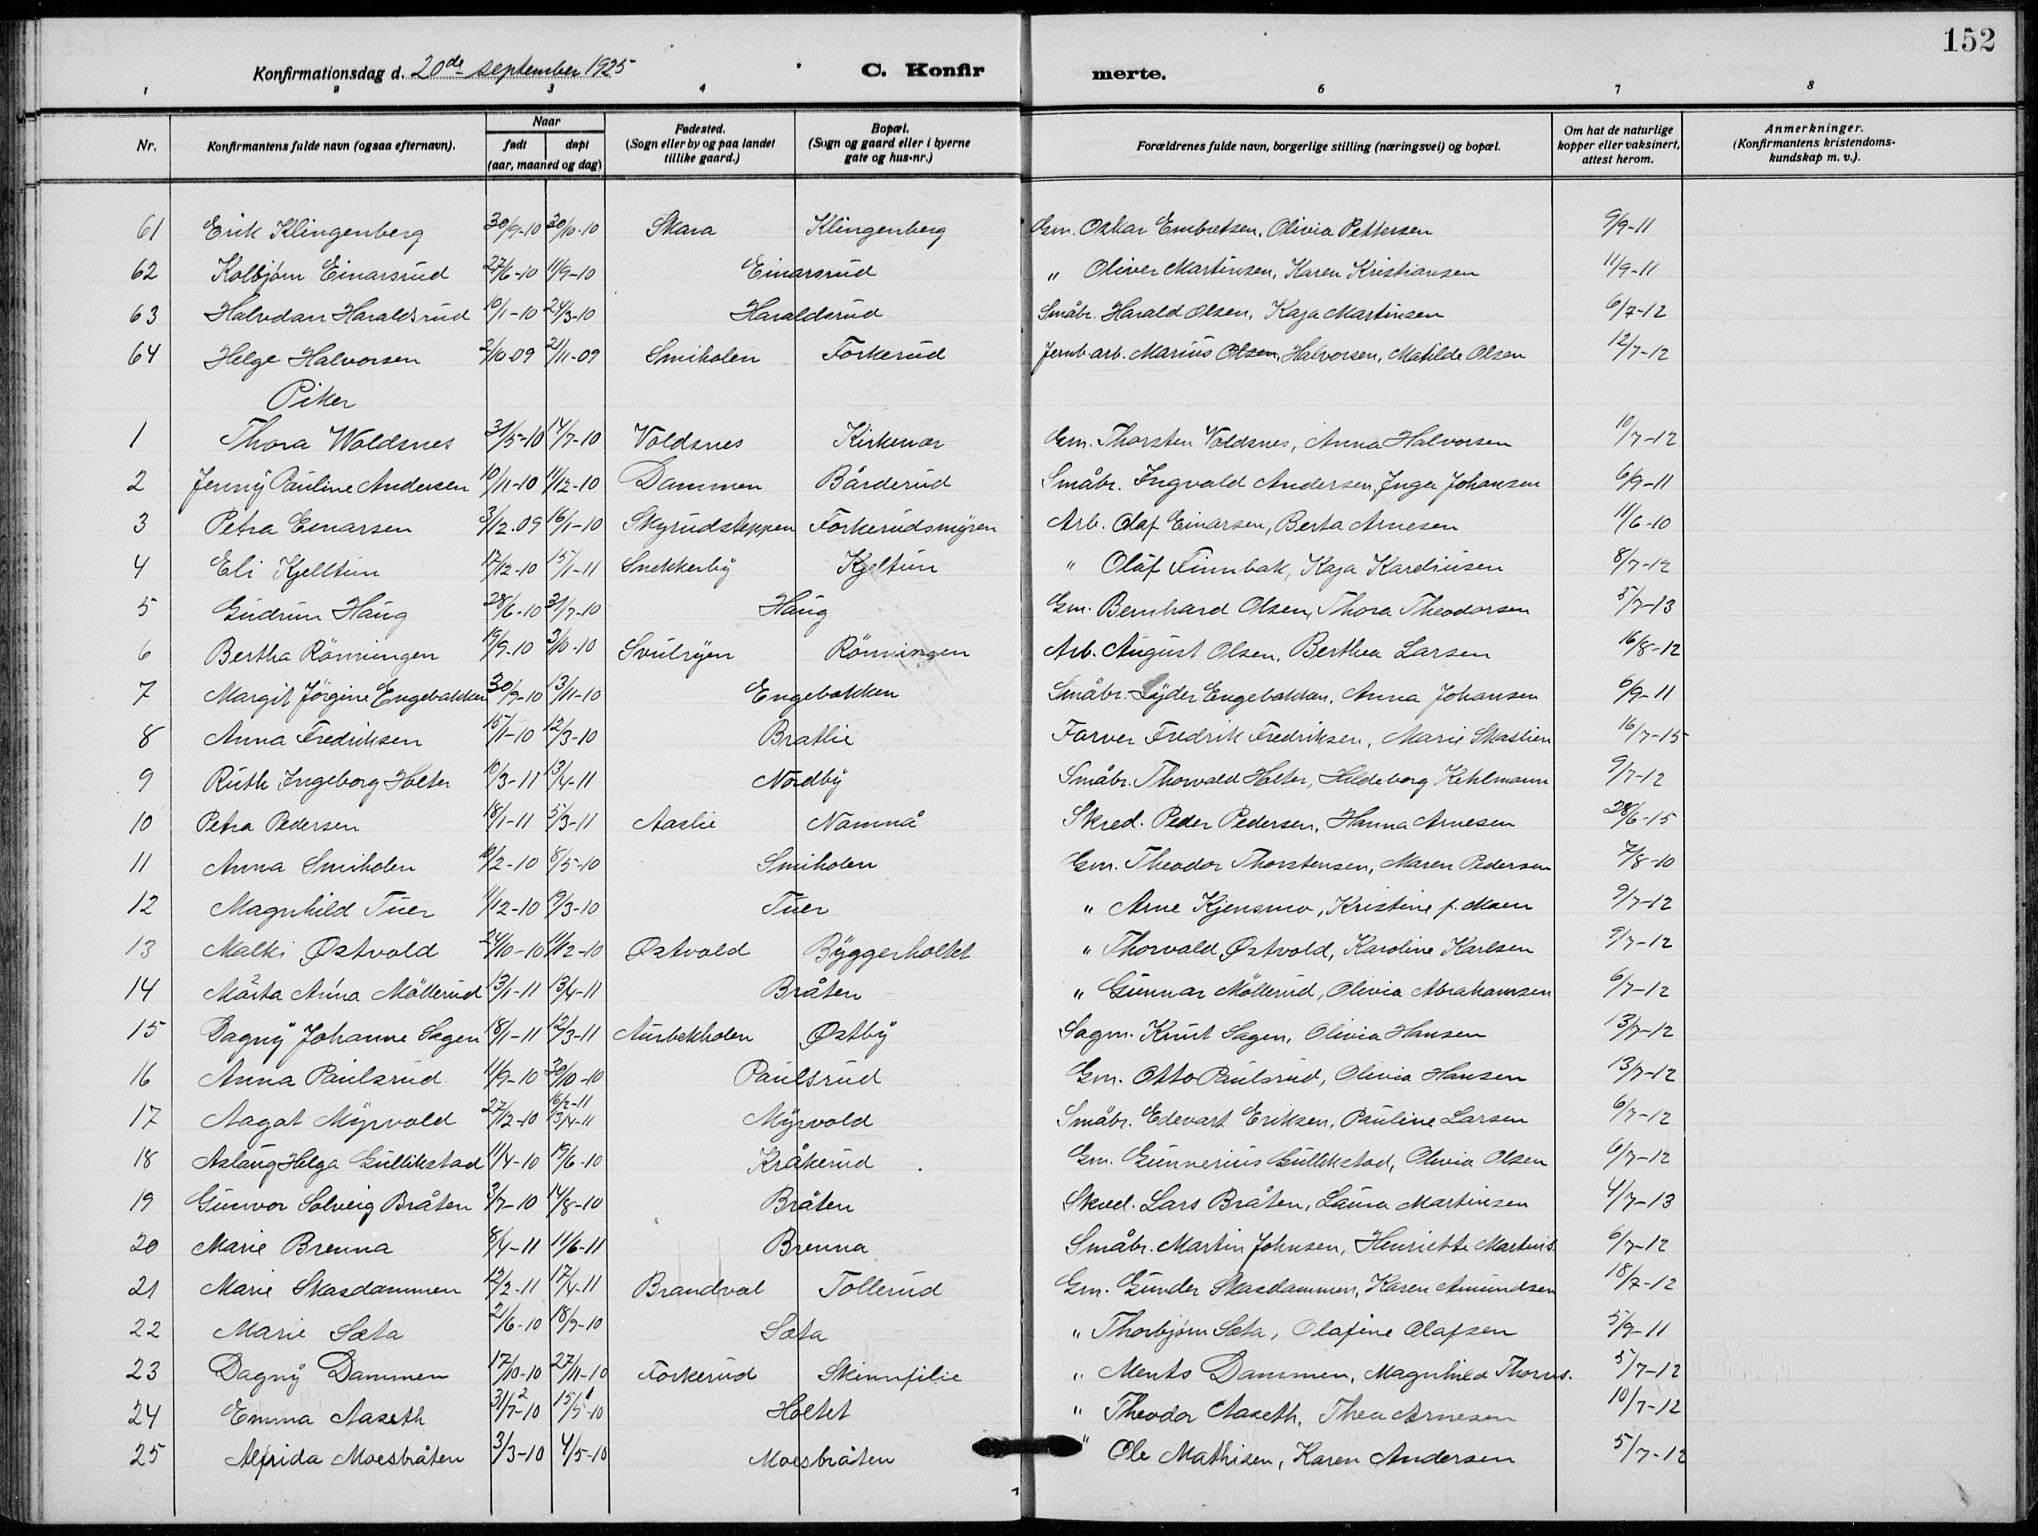 152
Konfirmationsdag d. 20de september 1925 C. Konfirmerte.
1 2 3 4 6 7 8
Nr. Konfirmantens fulde navn (ogsaa efternavn). Naar født døpt (aar, maaned og dag) Fødested. (Sogn eller by og paa landet tillike gaard.) Bopæl. (Sogn og gaard eller i byerne gate og hus-nr.) Forældrenes fulde navn, borgerlige stilling (næringsvei) og bopæl. Om hat de naturlige kopper eller vaksinert, attest herom. Anmerkninger. (Konfirmantens kristendoms-kundskap m. v.).
61 Erik Klingenberg 30/9-10 30/10-10 Skara Klingenberg Gm. Oskar Embretsen, Olivia Pettersen 9/9-11
62 Kolbjørn Einarsrud 27/6-10 11/9-10 Einarsrud " Oliver Martinsen, Karen Kristiansen 11/9-11
63 Halvdan Haraldsrud 10/1-10 24/3-10 Haraldsrud Småbr. Harald Olsen, Kaja Martinsen 6/7-12
64 Helge Halvorsen 2/10-09 21/11-09 Smiholen Forkerud Jernb.arb. Marius Olsen, Halvorsen, Matilde Olsen 12/7-12
Piker
1 Thora Woldsnes 31/5-10 14/7-10 Voldsnes Kirkenær Gm. Thorsten Voldsnes, Anna Halvorsen 10/7-12
2 Jenny Pauline Andersen 10/11-10 11/12-10 Dammen Bårderud Småbr. Ingvald Andersen, Inga Johansen 6/9-11
3 Petra Einarsen 3/12-09 16/1-10 Skyrudsteppen Forkerudsmyren Arb. Olaf Einarsen, Berta Arnesen 11/6-10
4 Eli Kjelltun 17/12-10 15/1-11 Snekkerby Kjeltun " Olaf Finnbak, Kaja Kardiusen 8/7-12
5 Gudrun Haug 28/6-10 31/7-10 Haug Gm. Bernhard Olsen, Thora Theodorsen 5/7-13
6 Bertha Rönningen 19/9-10 3/10-10 Svulryen Rönningen Arb. August Olsen, Berthea Larsen 16/8-12
7 Margit Jörgine Engebakken 30/9-10 13/11-10 Engebakken Småbr. Lyder Engebakken, Anna Johansen 6/9-11
8 Anna Fredriksen 15/1-10 12/3-10 Bratlie Farver Fredrik Fredriksen, Marie Skaslien 16/7-15
9 Ruth Ingeborg Holter 10/3-11 13/4-11 Nordby Småbr. Thorvald Holter, Hildeborg Kehlmann 9/7-12
10 Petra Pedersen 18/1-11 5/3-11 Aaslie Namnå Skred. Peder Pedersen, Hanna Arnesen 28/6-15
11 Anna Smiholen 10/2-10 8/5-10 Smiholen Gm. Theodor Thorstensen, Maren Pedersen 7/8-10
12 Magnhild Tuer 11/12-10 19/3-10 Tuer " Arne Kjensmo, Kristine f. Moen 9/7-12
13 Malki Østvold 24/10-10 11/12-10 Østvold Byggerholtet " Thorvald Østvold, Karoline Karlsen 9/7-12
14 Märta Anna Möllerud 13/1-11 13/4-11 Bråten " Gunnar Möllerud, Olivia Abrahamsen 6/7-12
15 Dagny Johanne Sagen 18/1-11 12/3-11 Aurbekholen Østby Sagm. Knut Sagen, Olivia Hansen 13/7-12
16 Anna Paulsrud 11/9-10 30/10-10 Paulsrud Gm. Otto Paulsrud, Olivia Hansen 13/7-12
17 Aagot Myrvold 27/12-10 16/2-11 13/4-11 Myrvold Småbr. Edevart Eriksen, Pauline Larsen 6/7-12
18 Aslaug Helga Gullikstad 11/4-10 19/6-10 Kråkerud Gm. Gunnerius Gullikstad, Olivia Olsen 6/7-12
19 Gunvor Solveig Bråten 3/7-10 14/8-10 Bråten Skred. Lars Bråten, Laura Martinsen 4/7-13
20 Marie Brenna 8/4-11 11/6-11 Brenna Småbr. Martin Johnsen, Henriette Martins. 6/7-12
21 Marie Skasdammen 12/2-11 17/4-11 Brandval Tollerud Gm. Gunder Skasdammen, Karen Amundsen 18/7-12
22 Marie Sæta 21/6-10 18/9-10 Sæta " Thorbjørn Sæta, Olafine Olafsen 5/9-11
23 Dagny Dammen 17/10-10 27/11-10 Forkerud Skinnfilie " Ments Dammen, Magnhild Thorvs. 5/7-12
24 Emma Aaseth 31/7-10 15/5-10 Holtet " Theodor Aaseth, Thea Arnesen 10/7-12
25 Alfrida Moesbråten 3/3-10 4/5-10 Moesbråten " Ole Mathisen, Karen Andersen 5/7-12